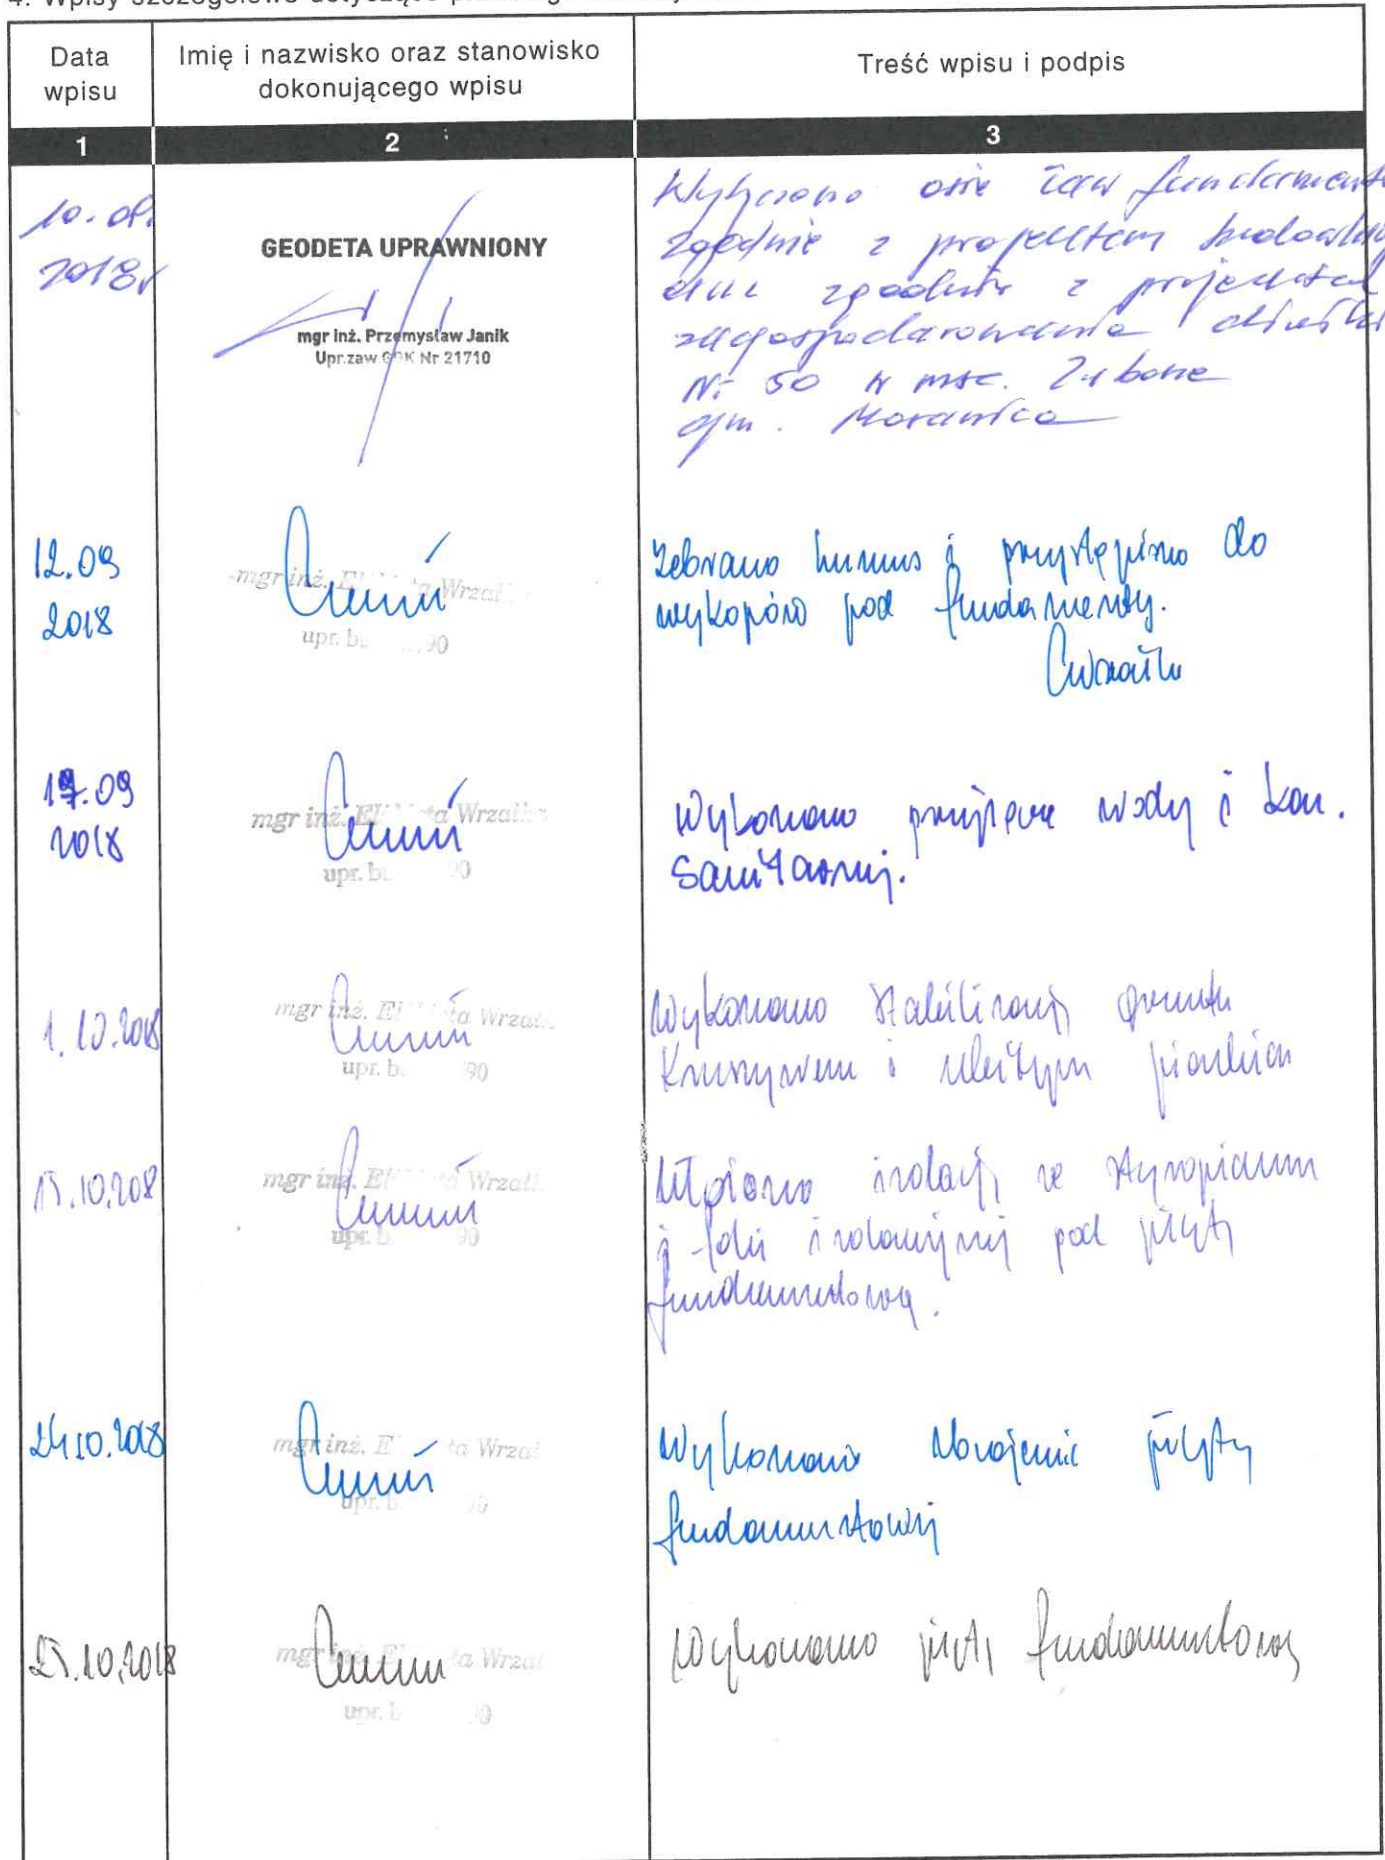 4. Wpisy szczegółowe dotyczące
Data
wpisu
Imię i nazwisko oraz stanowisko
dokonującego wpisu
Treść wpisu i podpis
1
2
3
2018r
GEODETA UPRAWNIONY
mgr inż. Przemysław Janik
Upr.zaw. GGK Nr 21710
Wytyczono osie ław
zgodnie z projektem
zgodnie z
zagospodarowania działki
Nr 50 w msc.
gm.
12.09
2018
mgr inż. Wrzał
upr. bu 90
Zebrano humus i przystąpiono do
wykopów pod fundamenty.
.09
2018
mgr inż. El ta Wrzali
upr. b 90
Wykonano przyłącze wody i kan.
sanitarnej.
1.10.2018
mgr inż. El ta Wrzal
upr. b 90
Wykonano stabilizację gruntu
kruszywem i ubitym piaskiem
15.10.2018
mgr inż. El ta Wrzal
upr. b 90
Ułożono izolację ze styropianu
i folii izolacyjnej pod płytę
fundamentową.
24.10.2018
mgr inż. E ta Wrzal
upr. b 90
Wykonano zbrojenie płyty
fundamentowej
25.10.2018
mgr inż. El ta Wrzal
upr. b 90
Wykonano płytę fundamentową